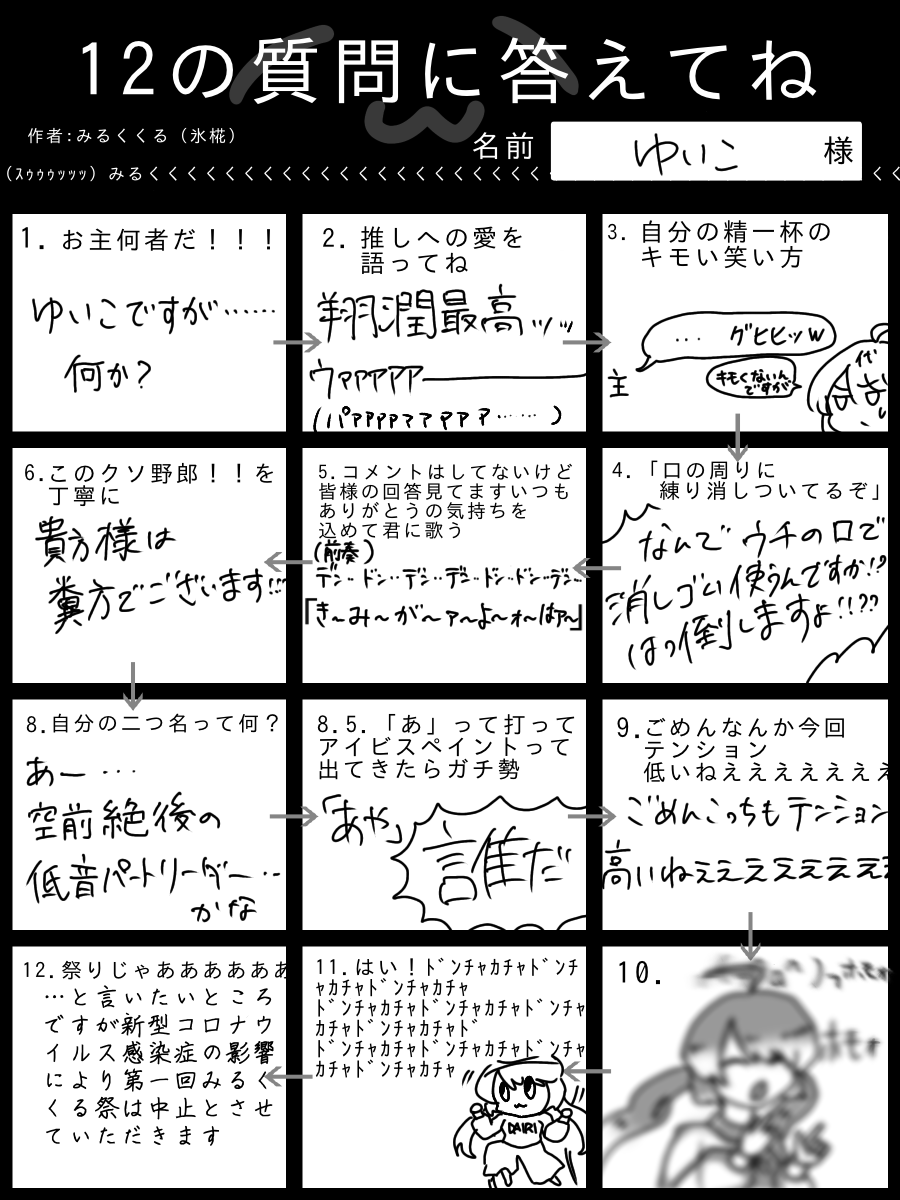 12の質問に答えてね
作者:みるくくる（氷椛）
名前 ゆいこ 様
(ｽｩｩｩｯｯｯ) みるくくくくくくくくくくくくくくくくくくくくく くく
1. お主何者だ！！！
ゆいこですが……
何か？
2. 推しへの愛を
語ってね
翔潤最高ッッ
ウァァァァァ――
(パァァァァァァァァァ……)
3. 自分の精一杯の
キモい笑い方
… グヒヒッw
キモくないん
ですが
主
代
4.「口の周りに
練り消しついてるぞ」
なんで ウチの口で
消しゴム使うんですか!?
はっ倒しますよ!!??
5.コメントはしてないけど
皆様の回答見てますいつも
ありがとうの気持ちを
込めて君に歌う
(前奏)
デン‥ドン‥デン‥デン‥ドン‥ドン‥デン‥
「き〜み〜が〜ァ〜よ〜ォ〜はァ〜」
6.このクソ野郎！！を
丁寧に
貴方様は
糞方でございます!!!
8.自分の二つ名って何？
あー …
空前絶後の
低音パートリーダー‥
かな
8.5.「あ」って打って
アイビスペイントって
出てきたらガチ勢
「あや」
誰だ
9.ごめんなんか今回
テンション
低いねえええええええ
ごめんこっちもテンション
高いねええええええええ
10.
11.はい！ﾄﾞﾝﾁｬｶﾁｬﾄﾞﾝﾁ
ｬｶﾁｬﾄﾞﾝﾁｬｶﾁｬ
ﾄﾞﾝﾁｬｶﾁｬﾄﾞﾝﾁｬｶﾁｬﾄﾞﾝﾁｬ
ｶﾁｬﾄﾞﾝﾁｬｶﾁｬﾄﾞ
ﾄﾞﾝﾁｬｶﾁｬﾄﾞﾝﾁｬｶﾁｬﾄﾞﾝﾁｬ
ｶﾁｬﾄﾞﾝﾁｬｶﾁｬ
DAIRI
12.祭りじゃああああああ
…と言いたいところ
ですが新型コロナウ
イルス感染症の影響
により第一回みるく
くる祭は中止とさせ
ていただきます